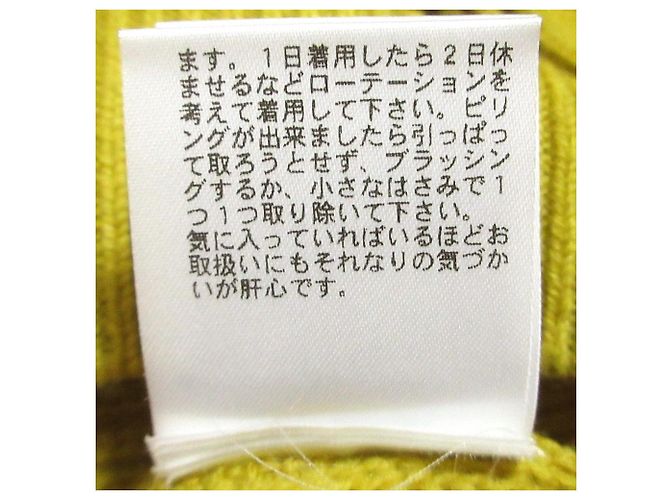 ます。１日着用したら２日休
ませるなどローテーションを
考えて着用して下さい。ピリ
ングが出来ましたら引っぱっ
て取ろうとせず、ブラッシン
グするか、小さなはさみで１
つ１つ取り除いて下さい。
気に入っていればいるほどお
取扱いにもそれなりの気づか
いが肝心です。